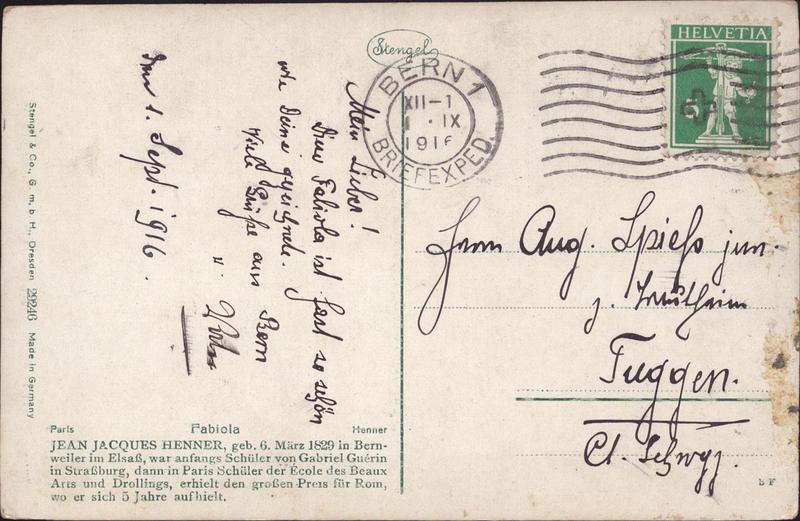 Stengel
BERN 1
XII-1
1 · IX
1916
BRIEFEXPED.
HELVETIA
5
den 1. Sept. 1916.
Mein Lieber!
Diese Fabiola ist fast so schön
wie Deine gezeichnete.
Viele Grüße aus Bern
"
Herrn Aug. Spieß jun.
z.
Tuggen.
Ct. Schwyz.
Stengel & Co., G. m. b. H., Dresden 29246 Made in Germany
Paris Fabiola Henner
JEAN JACQUES HENNER, geb. 6. März 1829 in Bern-
weiler im Elsaß, war anfangs Schüler von Gabriel Guérin
in Straßburg, dann in Paris Schüler der École des Beaux
Arts und Drollings, erhielt den großen Preis für Rom,
wo er sich 5 Jahre aufhielt.